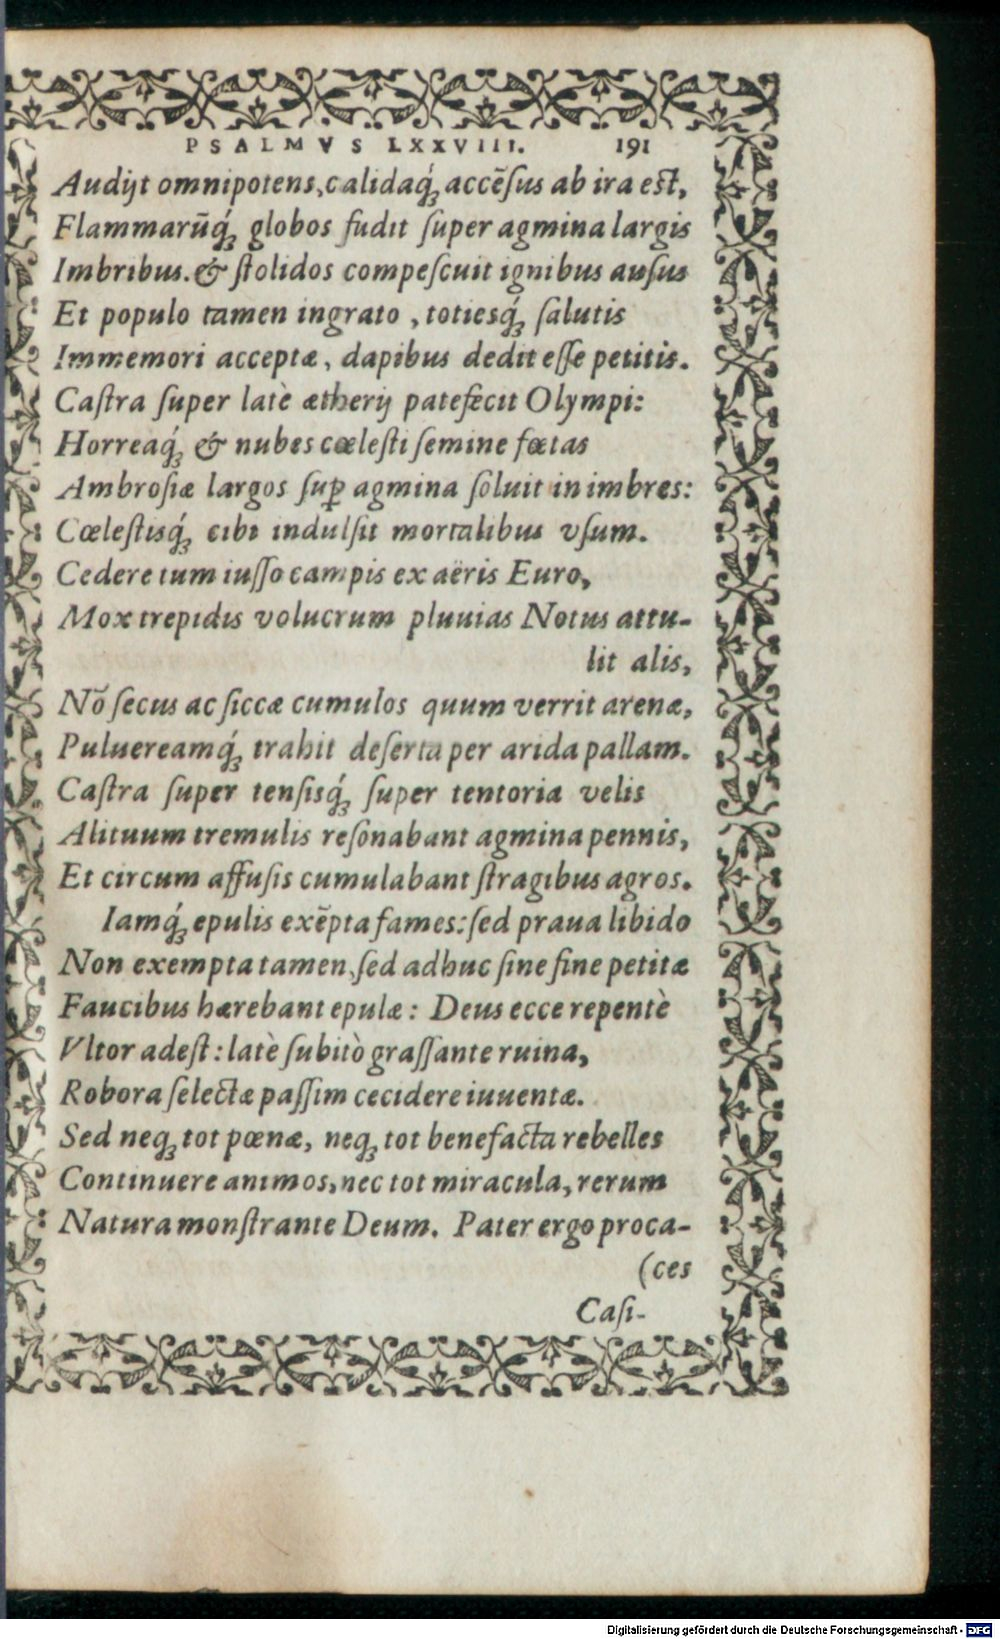 PSALMVS LXXVIII. 191
Audijt omnipotens, calidaq́ꝫ accẽſus ab ira eſt,
Flammarũq́ꝫ globos fudit ſuper agmina largis
Imbribus. & ſtolidos compeſcuit ignibus auſus
Et populo tamen ingrato, totiesq́ꝫ ſalutis
Immemori acceptæ, dapibus dedit eſſe petitis.
Caſtra ſuper latè ætherij patefecit Olympi:
Horreaq́ꝫ & nubes cœleſti ſemine fœtas
Ambroſiæ largos ſuꝑ agmina ſoluit in imbres:
Cœleſtisq́ꝫ cibi indulſit mortalibus vſum.
Cedere tum iuſſo campis ex aëris Euro,
Mox trepidis volucrum pluuias Notus attu-
lit alis,
Nõ ſecus ac ſiccæ cumulos quum verrit arenæ,
Puluereamq́ꝫ trahit deſerta per arida pallam.
Caſtra ſuper tenſisq́ꝫ ſuper tentoria velis
Alituum tremulis reſonabant agmina pennis,
Et circum affuſis cumulabant ſtragibus agros.
Iamq́ꝫ epulis exẽpta fames: ſed praua libido
Non exempta tamen, ſed adhuc ſine fine petitæ
Faucibus hærebant epulæ: Deus ecce repentè
Vltor adeſt: latè ſubitò graſſante ruina,
Robora ſelectæ paſſim cecidere iuuentæ.
Sed neqꝫ tot pœnæ, neqꝫ tot benefacta rebelles
Continuere animos, nec tot miracula, rerum
Natura monſtrante Deum. Pater ergo proca-
(ces
Caſi-
Digitalisierung gefördert durch die Deutsche Forschungsgemeinschaft - DFG